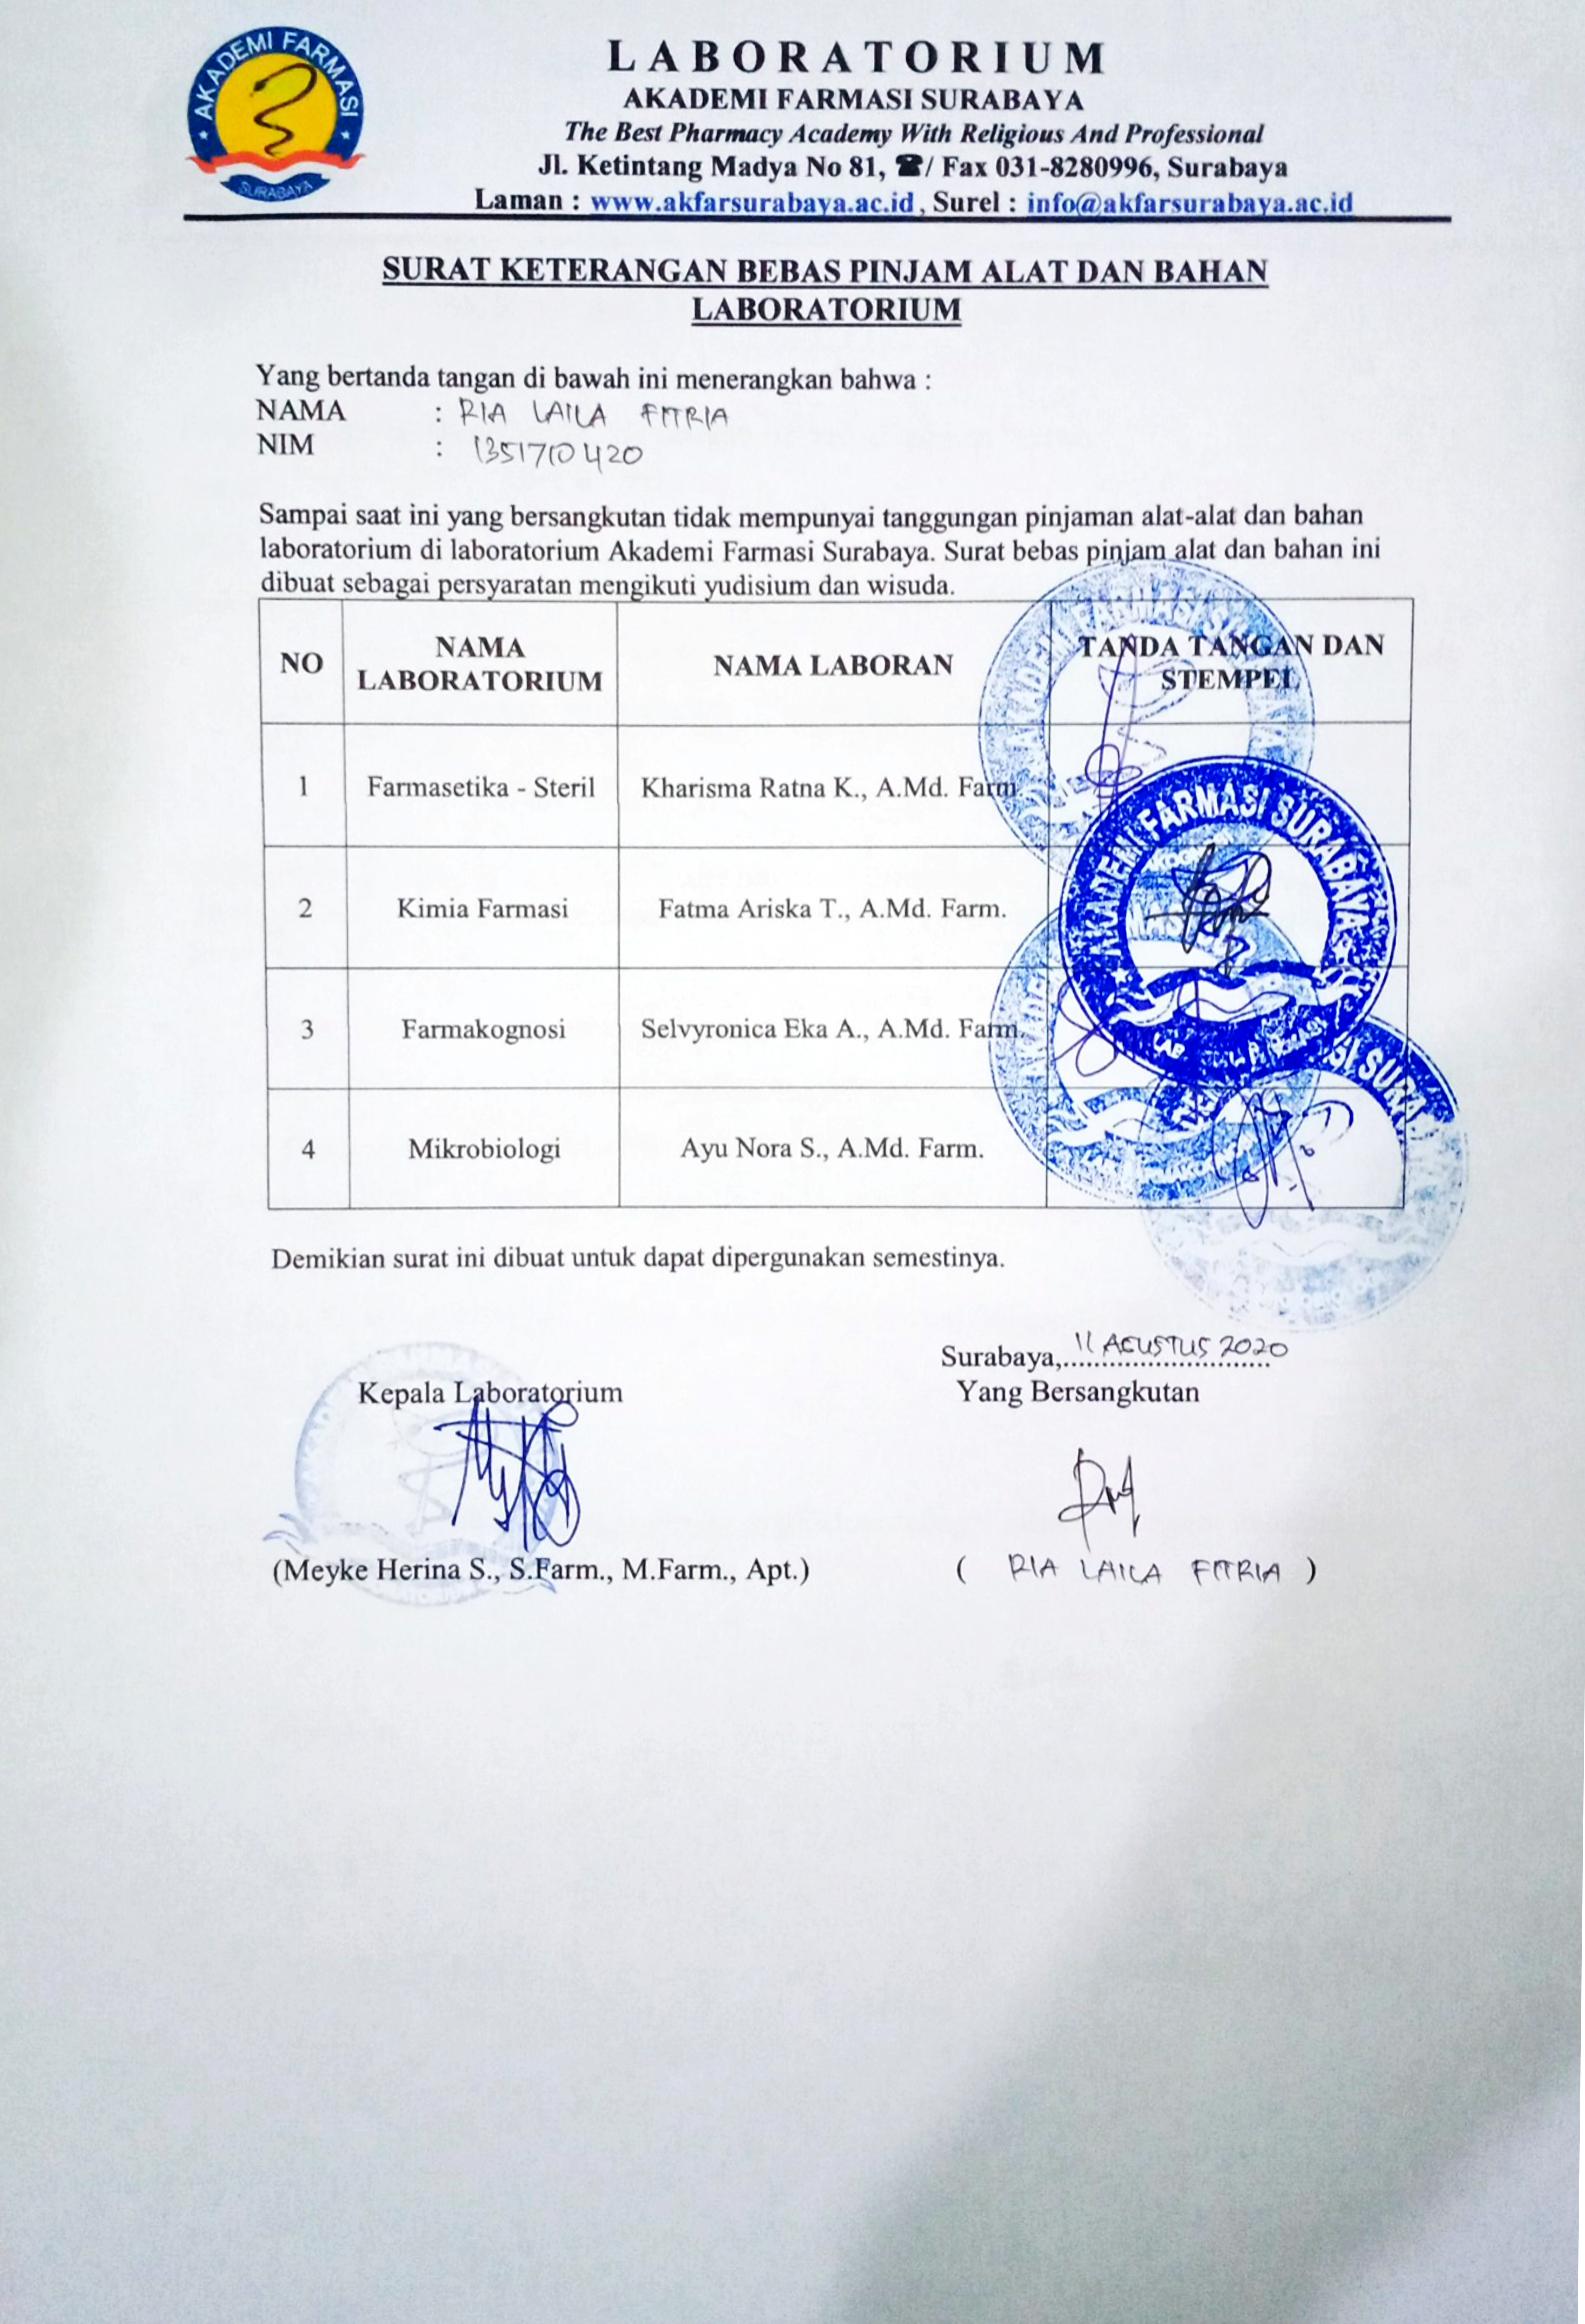 AKADEMI FARMASI
SURABAYA
LABORATORIUM
AKADEMI FARMASI SURABAYA
The Best Pharmacy Academy With Religious And Professional
Jl. Ketintang Madya No 81, ☎/ Fax 031-8280996, Surabaya
Laman : www.akfarsurabaya.ac.id , Surel : info@akfarsurabaya.ac.id
SURAT KETERANGAN BEBAS PINJAM ALAT DAN BAHAN
LABORATORIUM
Yang bertanda tangan di bawah ini menerangkan bahwa :
NAMA : RIA LAILA FITRIA
NIM : 1351710420
Sampai saat ini yang bersangkutan tidak mempunyai tanggungan pinjaman alat-alat dan bahan
laboratorium di laboratorium Akademi Farmasi Surabaya. Surat bebas pinjam alat dan bahan ini
dibuat sebagai persyaratan mengikuti yudisium dan wisuda.
NO NAMA LABORATORIUM NAMA LABORAN TANDA TANGAN DAN STEMPEL
1 Farmasetika - Steril Kharisma Ratna K., A.Md. Farm.
2 Kimia Farmasi Fatma Ariska T., A.Md. Farm.
3 Farmakognosi Selvyronica Eka A., A.Md. Farm.
4 Mikrobiologi Ayu Nora S., A.Md. Farm.
AKADEMI FARMASI SURABAYA
Demikian surat ini dibuat untuk dapat dipergunakan semestinya.
Surabaya, 11 AGUSTUS 2020
Kepala Laboratorium Yang Bersangkutan
(Meyke Herina S., S.Farm., M.Farm., Apt.) ( RIA LAILA FITRIA )